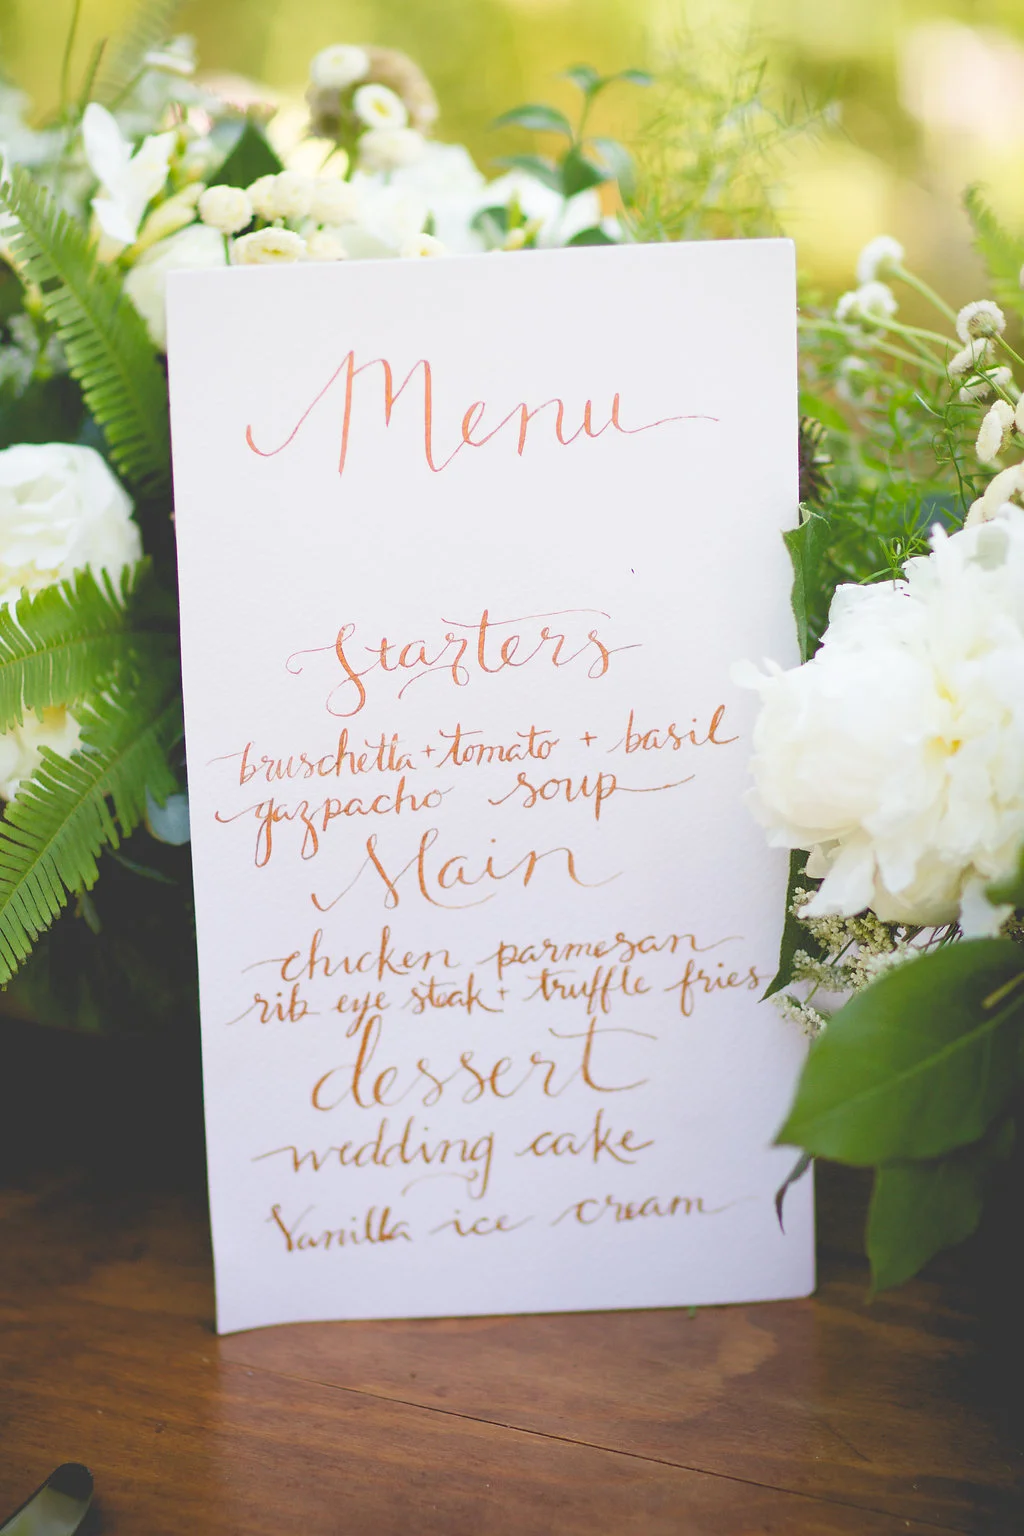 Menu
Starters
bruschetta + tomato + basil
gazpacho soup
Main
chicken parmesan
rib eye steak + truffle fries
dessert
wedding cake
Vanilla ice cream